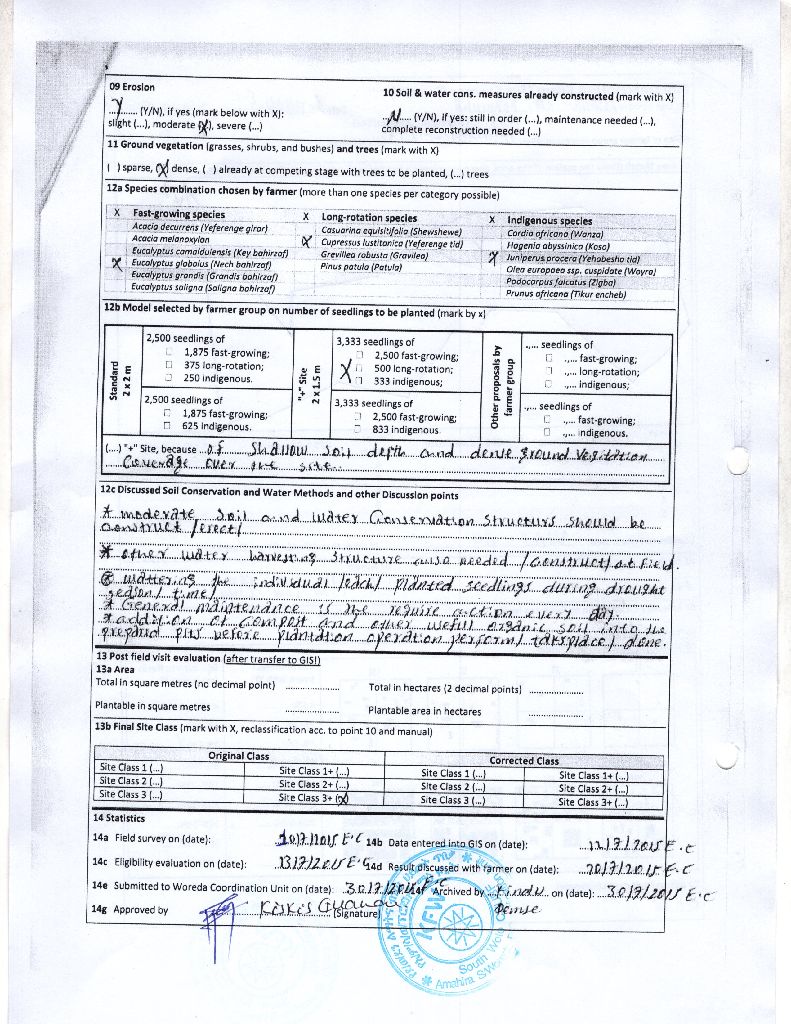 09 Erosion
10 Soil & water cons. measures already constructed (mark with X)
Y (Y/N), if yes (mark below with X):
slight (...), moderate (X), severe (...)
N (Y/N), if yes: still in order (...), maintenance needed (...),
complete reconstruction needed (...)
11 Ground vegetation (grasses, shrubs, and bushes) and trees (mark with X)
( ) sparse, (X) dense, ( ) already at competing stage with trees to be planted, (...) trees
12a Species combination chosen by farmer (more than one species per category possible)
X Fast-growing species
Acacia decurrens (Yeferenge girar)
Acacia melanoxylon
Eucalyptus camaldulensis (Key bahirzaf)
X Eucalyptus globolus (Nech bahirzaf)
Eucalyptus grandis (Grandis bahirzaf)
Eucalyptus saligna (Saligna bahirzaf)
X Long-rotation species
Casuarina equisitifolia (Shewshewe)
X Cupressus lustitanica (Yeferenge tid)
Grevillea robusta (Gravilea)
Pinus patula (Patula)
X Indigenous species
Cordia africana (Wanza)
Hagenia abyssinica (Koso)
X Juniperus procera (Yehabesha tid)
Olea europaea ssp. cuspidate (Woyra)
Podocarpus falcatus (Zigba)
Prunus africana (Tikur encheb)
12b Model selected by farmer group on number of seedlings to be planted (mark by x)
Standard
2 x 2 m
2,500 seedlings of
1,875 fast-growing;
375 long-rotation;
250 indigenous.
2,500 seedlings of
1,875 fast-growing;
625 indigenous.
"+" Site
2 x 1.5 m
3,333 seedlings of
2,500 fast-growing;
X 500 long-rotation;
333 indigenous;
3,333 seedlings of
2,500 fast-growing;
833 indigenous.
Other proposals by
farmer group
.,... seedlings of
.,... fast-growing;
.,... long-rotation;
.,... indigenous;
.,... seedlings of
.,... fast-growing;
.,... indigenous.
(...) "+" Site, because of shallow soil depth and dense ground vegitation
coverage over the site
12c Discussed Soil Conservation and Water Methods and other Discussion points
* moderate soil and water conservation structurs should be
construct /erect/
* other water harvesting structure also needed /construct/ at field.
* wattering the individual /each/ planted seedlings during drought
sedion/ time/
* General maintenance is the require action every day.
* addition of compost and other usefull organic soil into the
prepared pits before plantation operation perform/ takeplace/ done.
13 Post field visit evaluation (after transfer to GIS!)
13a Area
Total in square metres (no decimal point) ............... Total in hectares (2 decimal points) ...............
Plantable in square metres ............... Plantable area in hectares ...............
13b Final Site Class (mark with X, reclassification acc. to point 10 and manual)
Original Class Corrected Class
Site Class 1 (...) Site Class 1+ (...) Site Class 1 (...) Site Class 1+ (...)
Site Class 2 (...) Site Class 2+ (...) Site Class 2 (...) Site Class 2+ (...)
Site Class 3 (...) Site Class 3+ (X) Site Class 3 (...) Site Class 3+ (...)
14 Statistics
14a Field survey on (date): 10/7/2015 E.C 14b Data entered into GIS on (date): 12/7/2015 E.C
14c Eligibility evaluation on (date): 13/7/2015 E.C 14d Result discussed with farmer on (date): 20/7/2015 E.C
14e Submitted to Woreda Coordination Unit on (date): 30/7/2015 E.C 14f Archived by Findu on (date): 30/7/2015 E.C
Demse
14g Approved by Kiskis Guandu (Signature)
KFW
South Wollo
Amahra